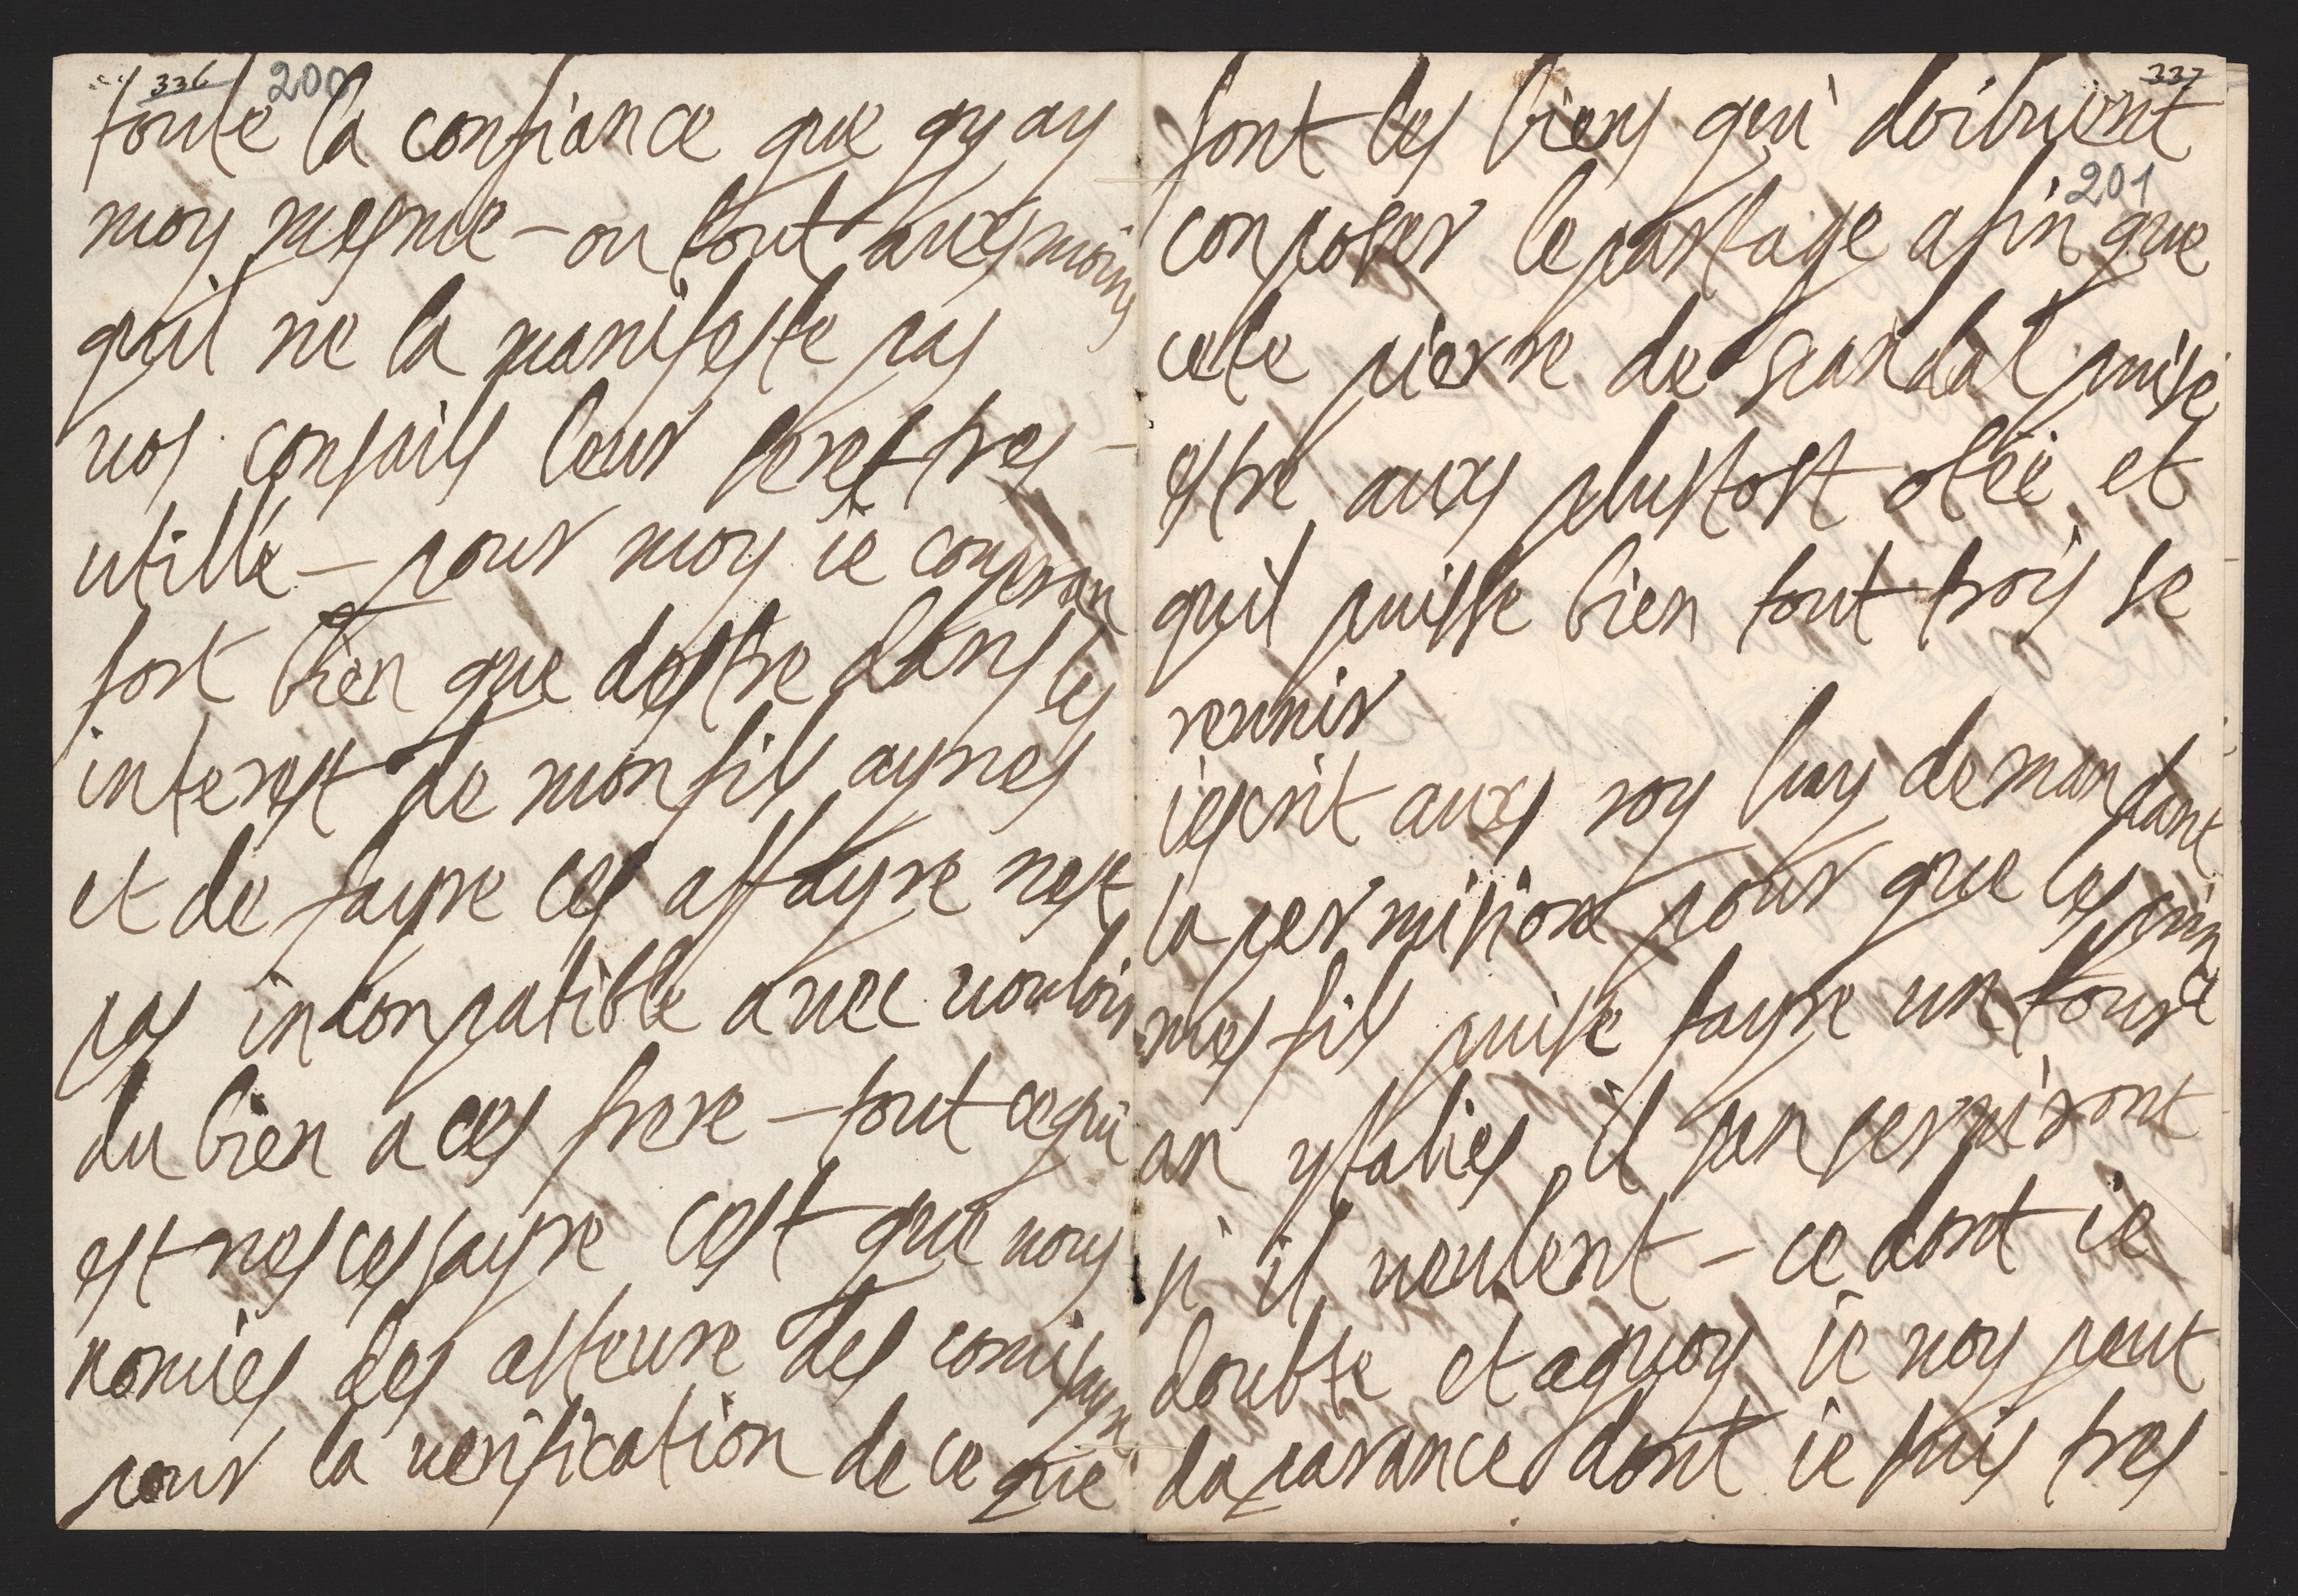 336 200
toute la confiance que gy ay
moy mesme – ou tout aux moins
quil ne la manifeste pas
vos consails leur seret tres –
utille – pour moy ie conpran
fort bien que destre dans les
interest de mon fils aynes
et de fayre ces affayre nest
pas inconpatible avec vouloir
du bien a ces frere – tout cequi
est nescessayre cest que vous
nomies des asteure des comisayre
pour la verification de ce que
337
sont les biens qui doibvient
201
conposer le partage afin que
cete pierre de scandal puise
estre auxs plustost ostée et
quil puisse bien tout trois se
reunir
iescrit auxs roy luy demandant
la permision pour que les prince
mes fils puise fayre un tour
an ytalies il san serviront
si il veulent – ce dont ie
doubte et aquoy ie voy peut
daparance dont ie suis tres